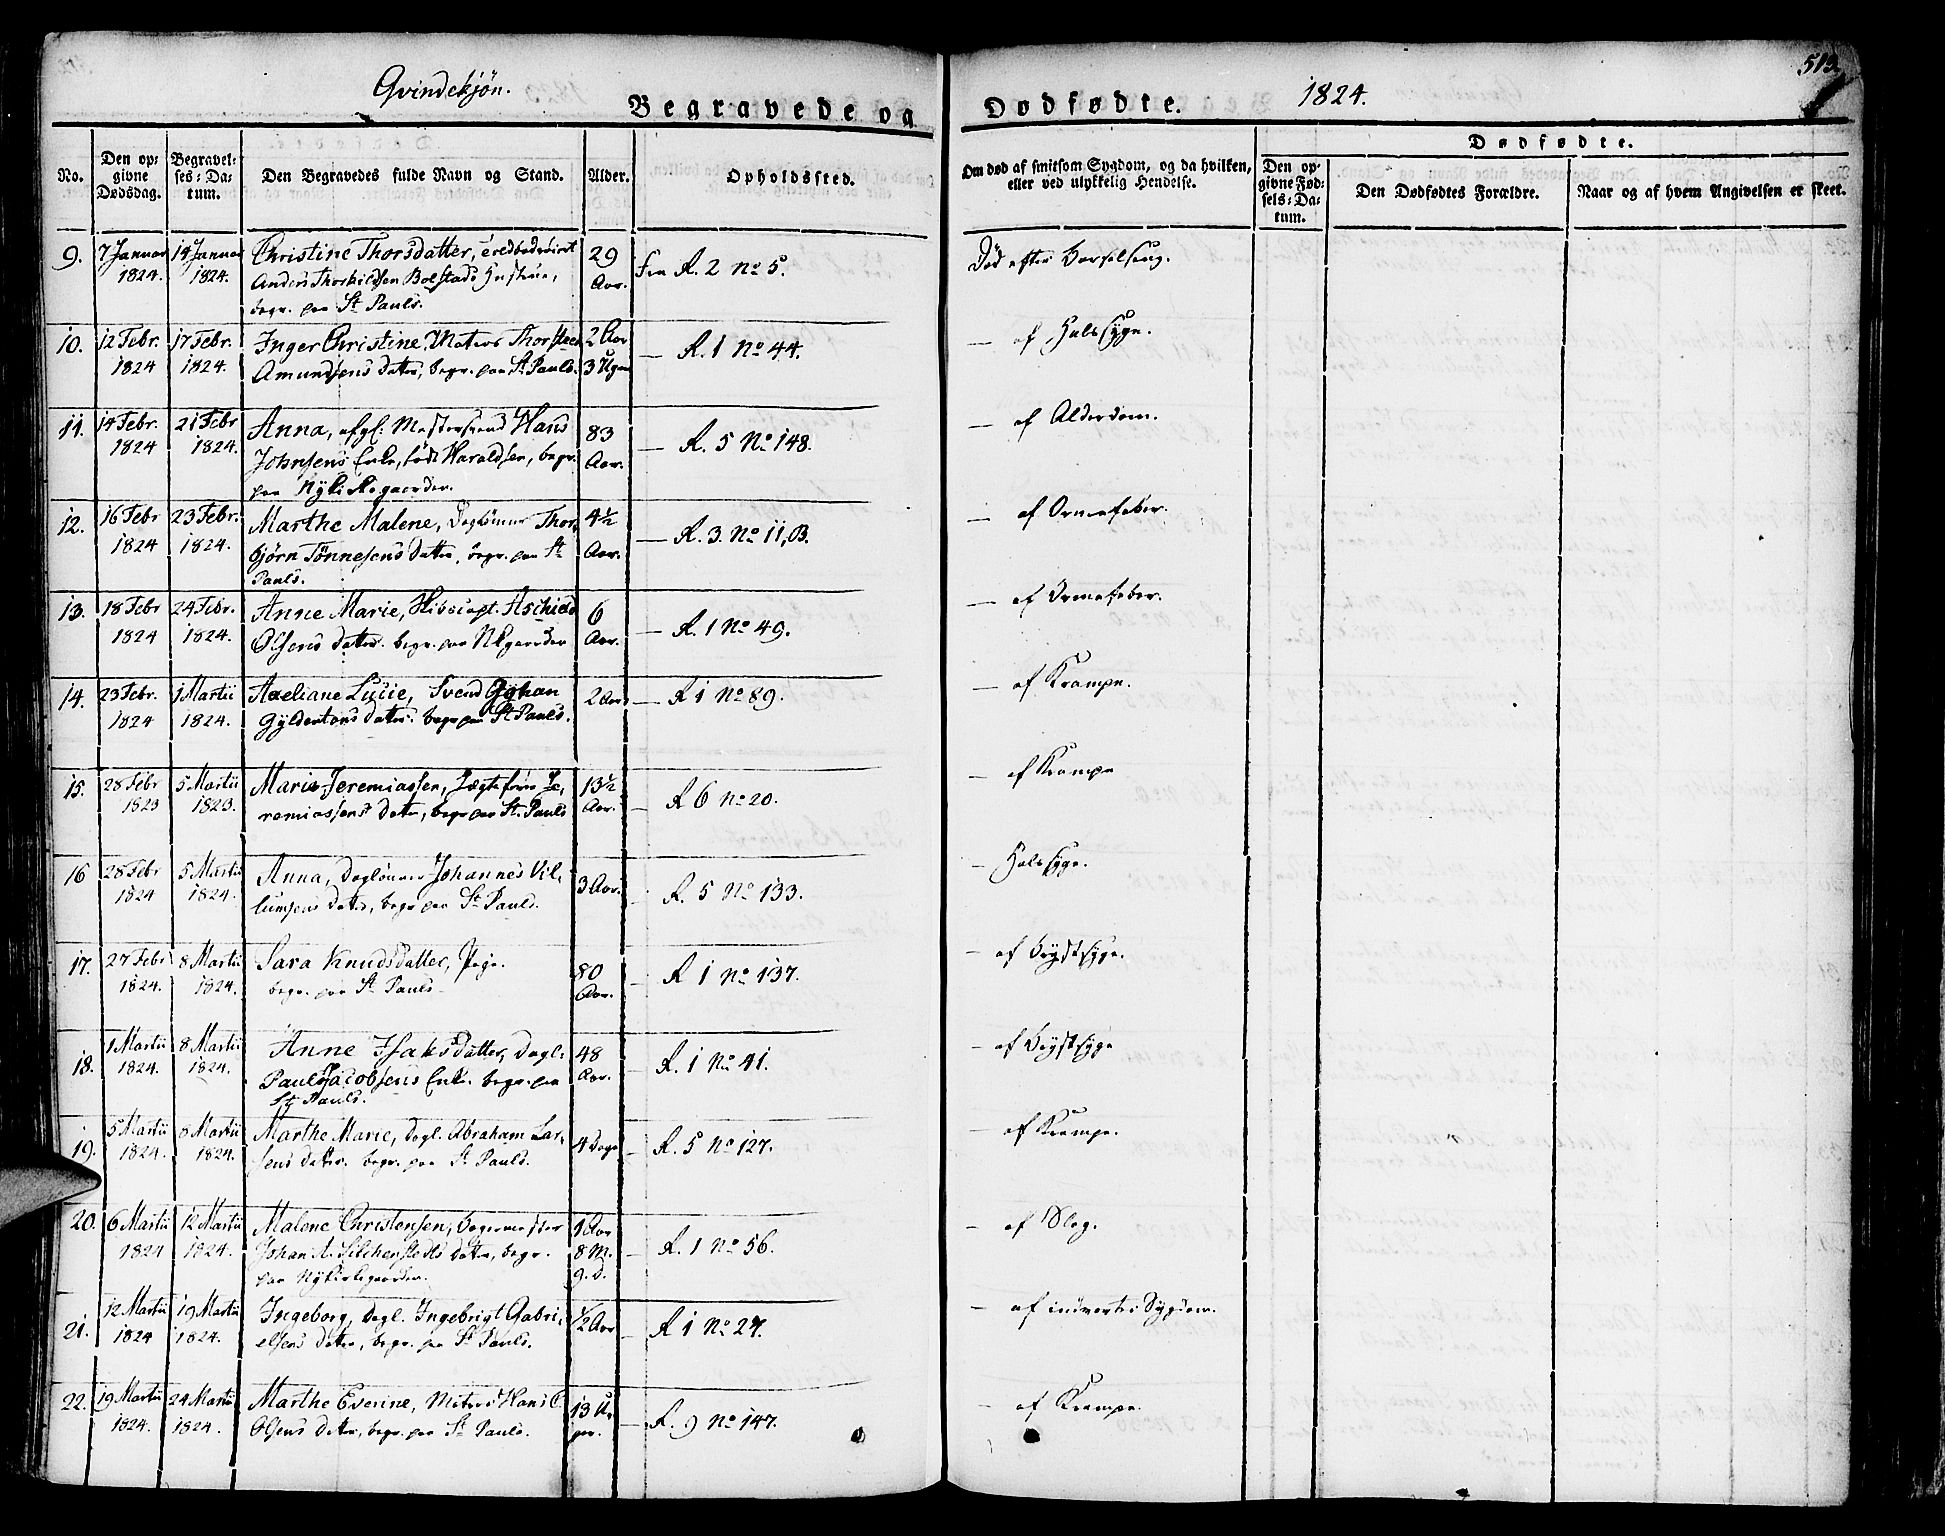 Qvindekjøn.
Begravede og Dødfødte.
1824.
513
No.
Den opgivne Dødsdag.
Begravelses-Datum.
Den Begravedes fulde Navn og Stand.
Alder.
Opholdssted.
Om død af smitsom Sygdom, og da hvilken, eller ved ulykkelig Hendelse.
Dødfødte.
Den opgivne Fødsels-Datum.
Den Dødfødtes Forældre.
Naar og af hvem Angivelsen er skeet.
9. 7 Januar 14 Januar Christine Thorsdatter, 29 Fra R. 2 No 5. Død efter Barselseng.
1824. 1824. Anders Thorkildsen Bolstads Hustrue, Aar.
begr. paa St Pauls.
10. 12 Febr. 17 Febr. Inger Christine, Matros Thorsteen 2 Aar — R. 1 No 44. — af Halssyge.
1824 1824. Amundsens Datter, begr. paa St Pauls. 3 Uger
11. 14 Febr. 21 Febr Anna, afgl. Mestersvend Hans 83 — R. 5 No 148. — af Alderdom.
1824 1824. Johnsens Enke, født Haraldsen, begr. Aar.
paa Nykirkegaarden.
12. 16 Febr 23 Febr. Marthe Malene, Dagl��nner Thor- 4½ — R. 3. No 11, B. — af Ormefeber.
1824 1824. bjørn Tønnesens Datter, begr. paa St Aar.
Pauls.
13. 18 Febr 24 Febr. Anne Marie, Aschild 6 — R. 1 No 49. — af Ormefeber.
1824 1824. Olsens Datter. begr. paa NKgaarden Aar.
14. 23 Febr. 1 Martii Lucie, Svend 2 Aar — R 1 No 89. — af Krampe.
1824 1824. Datter. begr. paa St Pauls.
15. 28 Febr 5 Martii Marie Jeremiassen, Je- 13½ — R 6 No 20. — af Krampe
1823 1823. remiassens Datter, begr. paa St. Pauls Aar.
16 28 Febr 5 Martii Anna, Daglønner Johannes Vil- 3 Aar. R. 5 No 133. — Halssyge.
1824 1824. lumsens Datter, begr. paa St Pauls.
17. 27 Febr 8 Martii Sara Knudsdatter, Pige. 80 — R 1 No 137. — af Brystsyge.
1824. 1824. begr. paa St Pauls Aar.
18. 1 Martii 8 Martii Anne Isaksdatter, Dagl. 48 — R. 1 No 41. — af Brystsyge
1824. 1824. Paul Jacobsens Enke. begr. paa Aar.
St Pauls.
19. 5 Martii 8 Martii Marthe Marie, Dagl. Abraham Lar- 4 Dage — R. 5 No 127. — af Krampe.
1824. 1824. sens Datter. begr. paa St Pauls.
20. 6 Martii 12 Martii Malene Christensen, Bagermester 1 Aar — R. 1 No 56. — af Slag.
1824 1824. Johan A. Datter, begr. 8 M.
paa Nykirkegaarden. 9. d.
21. 12 Martii 19 Martii Ingeborg, Dagl. Ingebrigt Gabri- ½ Aar — R 1 No 27. — af indvortes Sygdom.
1824 1824. elsens Datter, begr. paa St Pauls.
22. 19 Martii 24 Martii Marthe Everine, Matros Hans C. 13 U- — R. 9 No 147. — af Krampe.
1824. 1824. Olsens Datter, begr. paa St Pauls. ger.